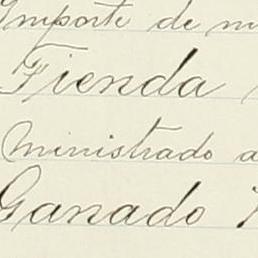 Importe de
Tienda
ministrado a
Ganado